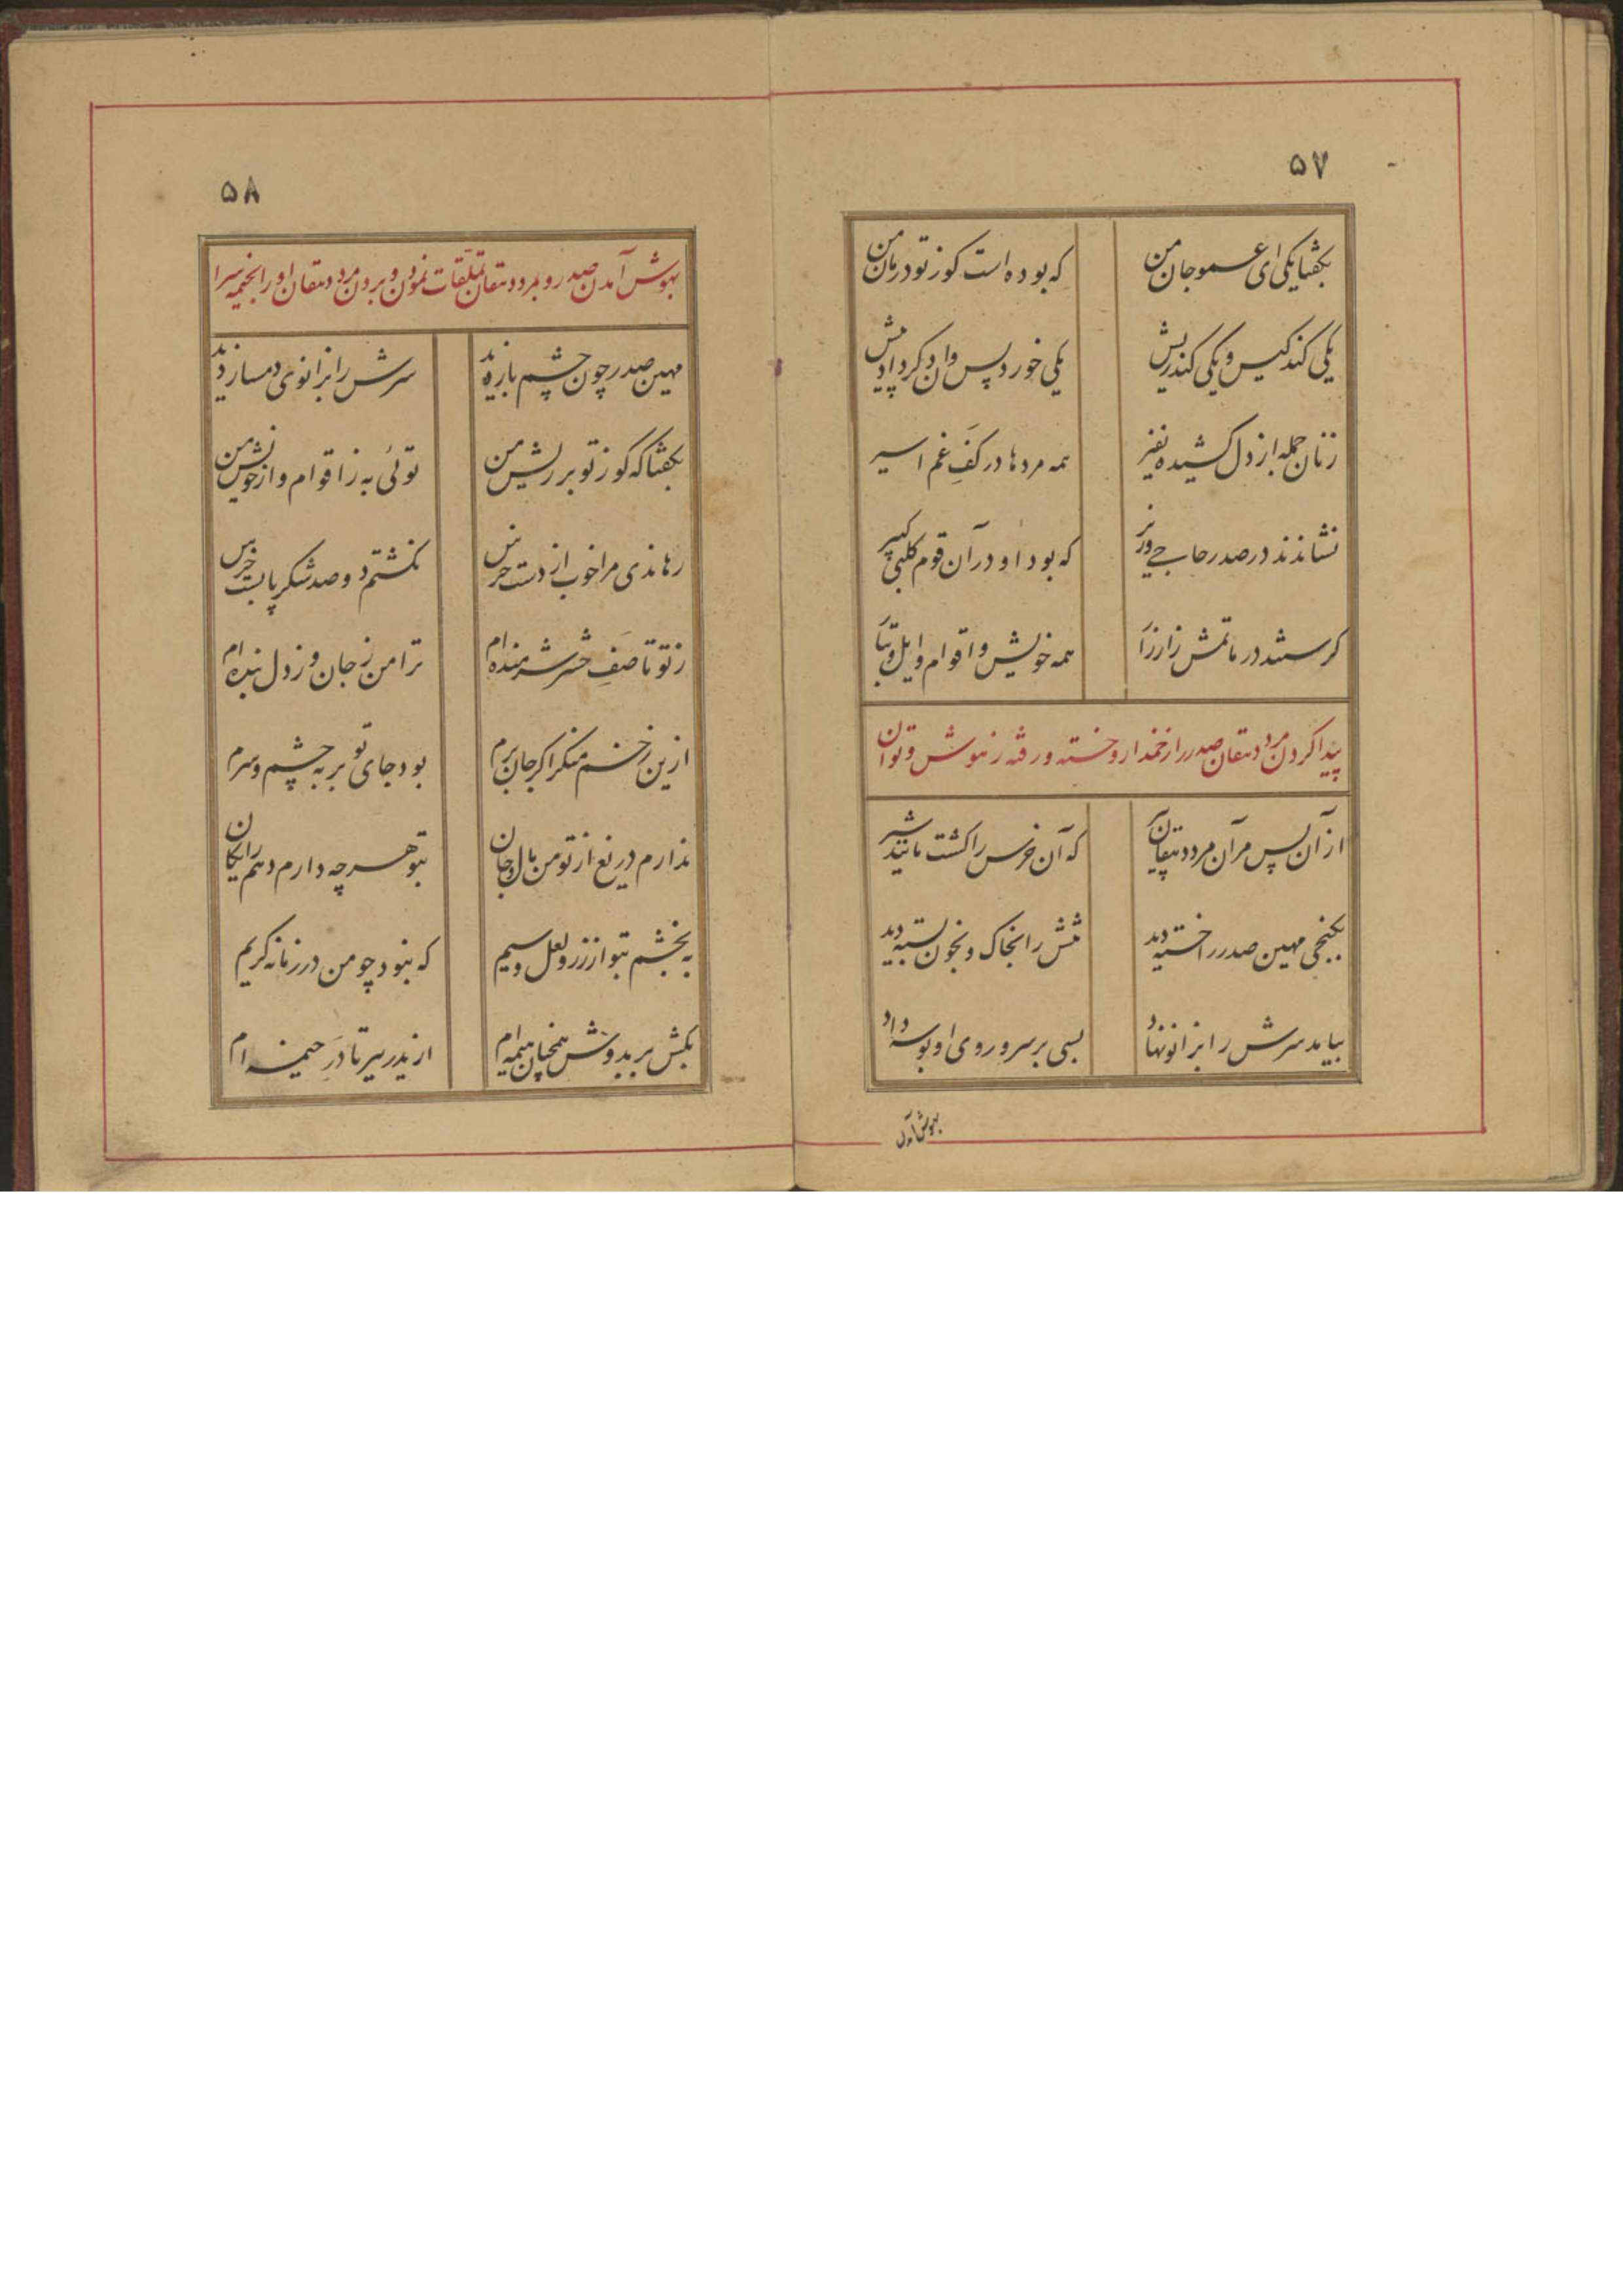 ۵۷
بگفتا یکی ای عمو جان من
که بوده است کوز تو درمان من
یکی کند کیس و یکی کند ریش
یکی خورد پس وان دگر داد پیش
زنان جمله از دل کشیده نفیر
همه مردها در کفِ غم اسیر
نشاندند در صدر حاجی وزیر
که بود او در آن قوم کلبی کبیر
گرستند در ماتمش زار زار
همه خویش و اقوام و ایل و تبار
پیدا کردن مرد دهقان صدر را زخمدار و خسته و رفته ز هوش و توان
از آن پس مر آن مرد دهقان پیر
که آن خرس را کشت مانند شیر
بکنجی مهین صدر را خسته دید
تنش را بخاک و بخون بسته دید
بیامد سرش را بزانو نهاد
بسی بر سر و روی او بوسه داد
بهوش آمدن
۵۸
بهوش آمدن صدر و بمرد دهقان تملقات نمودن و بردن مرد دهقان او را بخیمه سرا
مهین صدر چون چشم باز دید
سرش را بزانوی دمساز دید
بگفتا که کوز تو بر ریش من
توئی به ز اقوام و از خویش من
رهاندی مرا خوب از دست خرس
نکشتم دو صد شکر پابست خرس
ز تو تا صفِ حشر شرمنده ام
ترا من ز جان و ز دل بنده ام
ازین زخم منکر اگر جان برم
بود جای تو بر به چشم و سرم
ندارم دریغ از تو من مال و جان
بتو هر چه دارم دهم رایگان
به بخشم بتو از زر و لعل و سیم
که نبود چو من در زمانه کریم
بکش بر بدوش همچنان هیمه ام
از ایدر ببر تا درَ خیمه ام